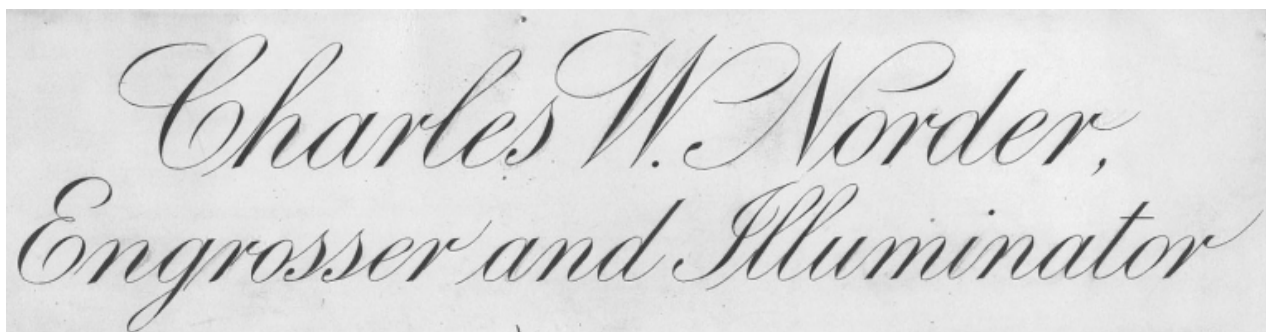 Charles W. Norder,
Engrosser and Illuminator